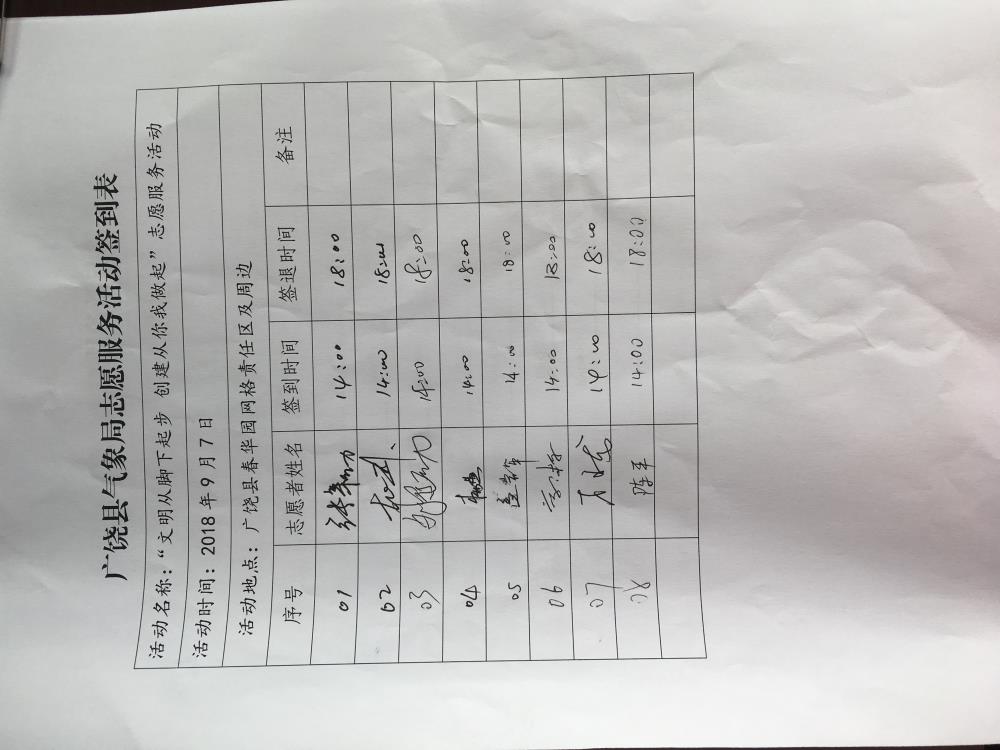 广饶县气象局志愿服务活动签到表
活动名称：“文明从脚下起步 创建从你我做起”志愿服务活动
活动时间：2018年9月7日
活动地点：广饶县春华园网格责任区及周边
序号 志愿者姓名 签到时间 签退时间 备注
01 14:00 18:00
02 14:00 18:00
03 14:00 18:00
04 14:00 18:00
05 14:00 18:00
06 14:00 18:00
07 14:00 18:00
08 陈军 14:00 18:00